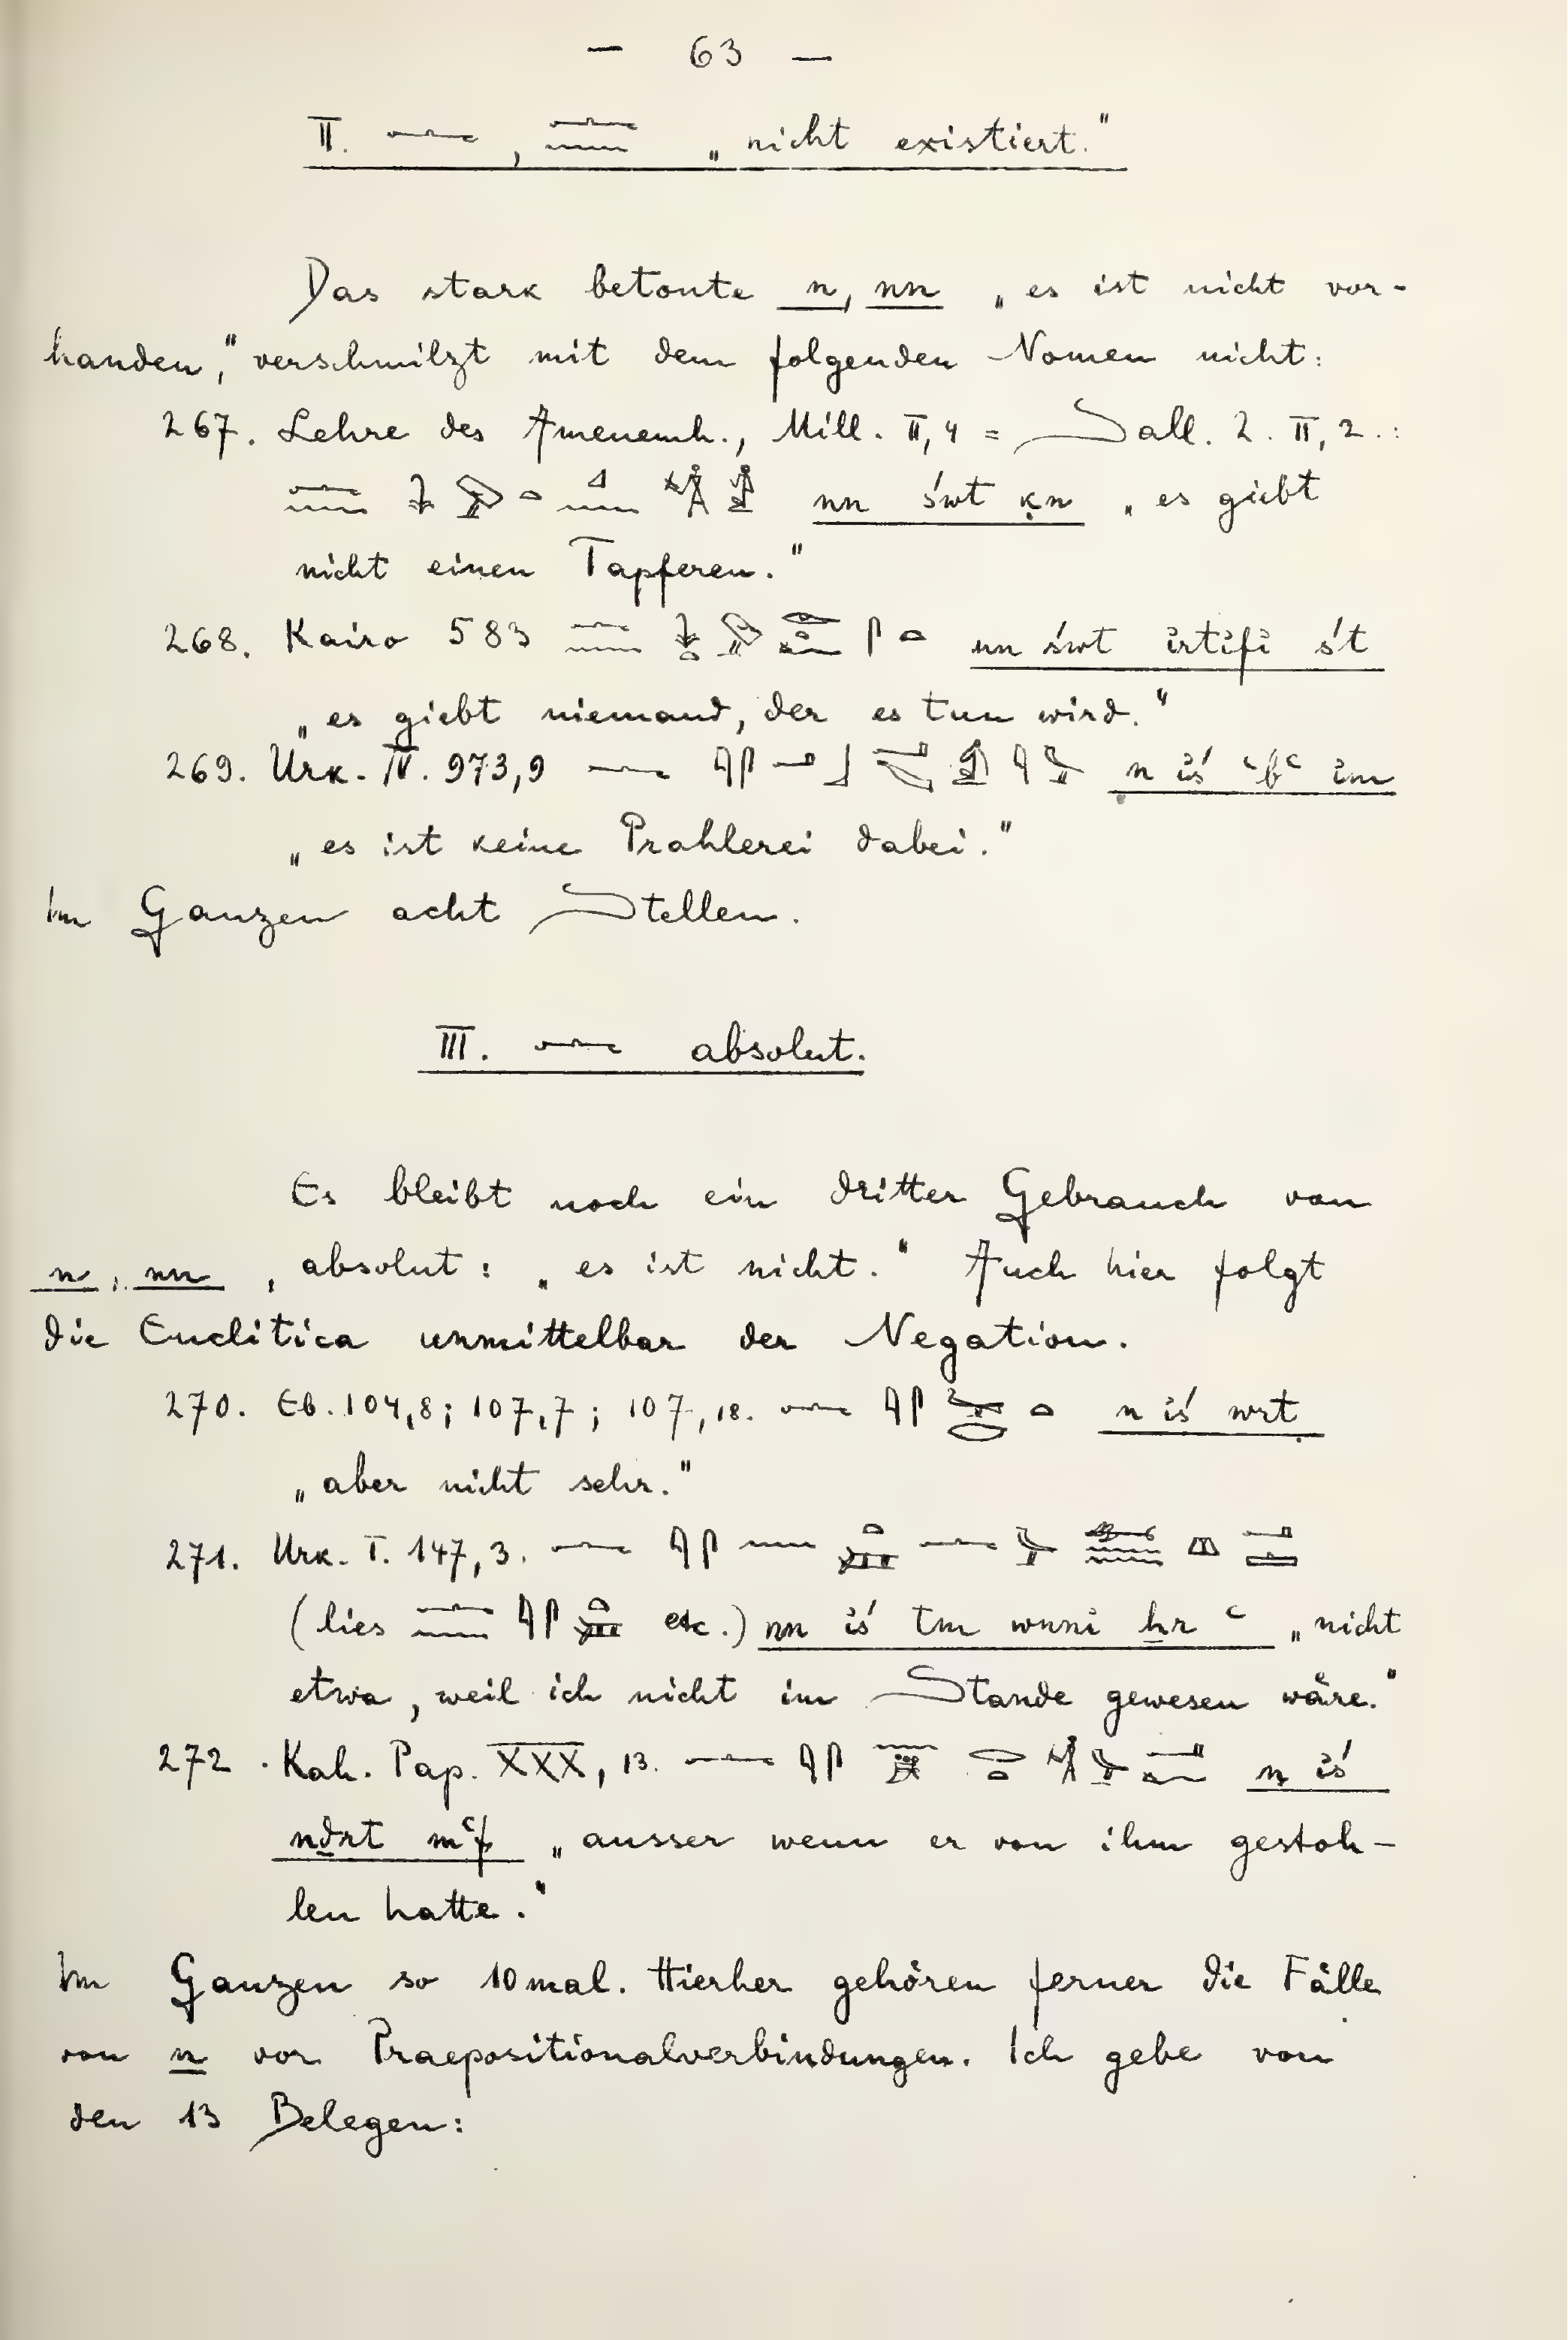 — 63 —
II. 𓂜, 𓂜𓈖 „nicht existiert."
Das stark betonte n, nn „es ist nicht vor-
handen," verschmilzt mit dem folgenden Nomen nicht:
267. Lehre des Amenemh., Mill. II, 4 = Sall. 2. II, 2.:
nn św̓t ḳn „es giebt
nicht einen Tapferen."
268. Kairo 583 nn św̓t i҆rti҆fi҆ śt
„es giebt niemand, der es tun wird."
269. Urk. IV. 973,9 n i҆ś ꜥbꜥ i҆m
„es ist keine Prahlerei dabei."
Im Ganzen acht Stellen.
III. 𓂜 absolut.
Es bleibt noch ein dritter Gebrauch von
n, nn, absolut: „es ist nicht." Auch hier folgt
die Enclitica unmittelbar der Negation.
270. Eb. 104,8; 107,7; 107,18. 𓂜 𓇋𓋴𓅨𓂋𓏏 n i҆ś wrt
„aber nicht sehr."
271. Urk. I. 147,3.
(lies 𓂜𓈖 𓇋𓋴 etc.) nn i҆ś tm wnni҆ ẖr ꜥ „nicht
etwa, weil ich nicht im Stande gewesen wäre."
272. Kah. Pap. XXX, 13. n i҆ś
nḏrt mꜥf „ausser wenn er von ihm gestoh-
len hatte."
Im Ganzen so 10mal. Hierher gehören ferner die Fälle
von n vor Praepositionalverbindungen. Ich gebe von
den 13 Belegen: